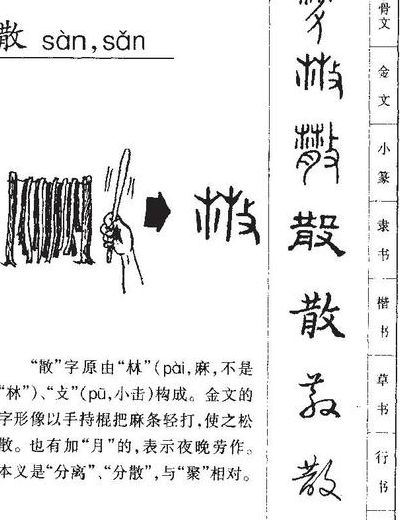 散 sàn, sǎn
“散”字原由“𣏟”(pài,麻,不是
“林”)、“攴”(pū,小击)构成。金文的
字形像以手持棍把麻条轻打,使之松
散。也有加“月”的,表示夜晚劳作。
本义是“分离”、“分散”,与“聚”相对。
骨文
金文
小篆
隶书
楷书
草书
行书
散
散
散
散